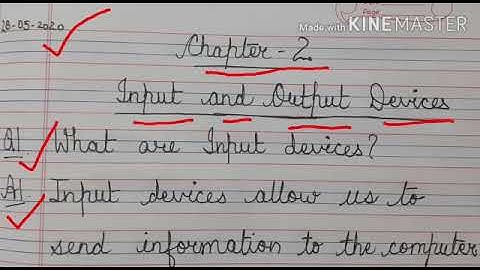 Page
Made with KINEMASTER
28-05-2020
Chapter-2
Input and Output Devices
Q1 What are Input devices?
A1 Input devices allow us to
send information to the computer